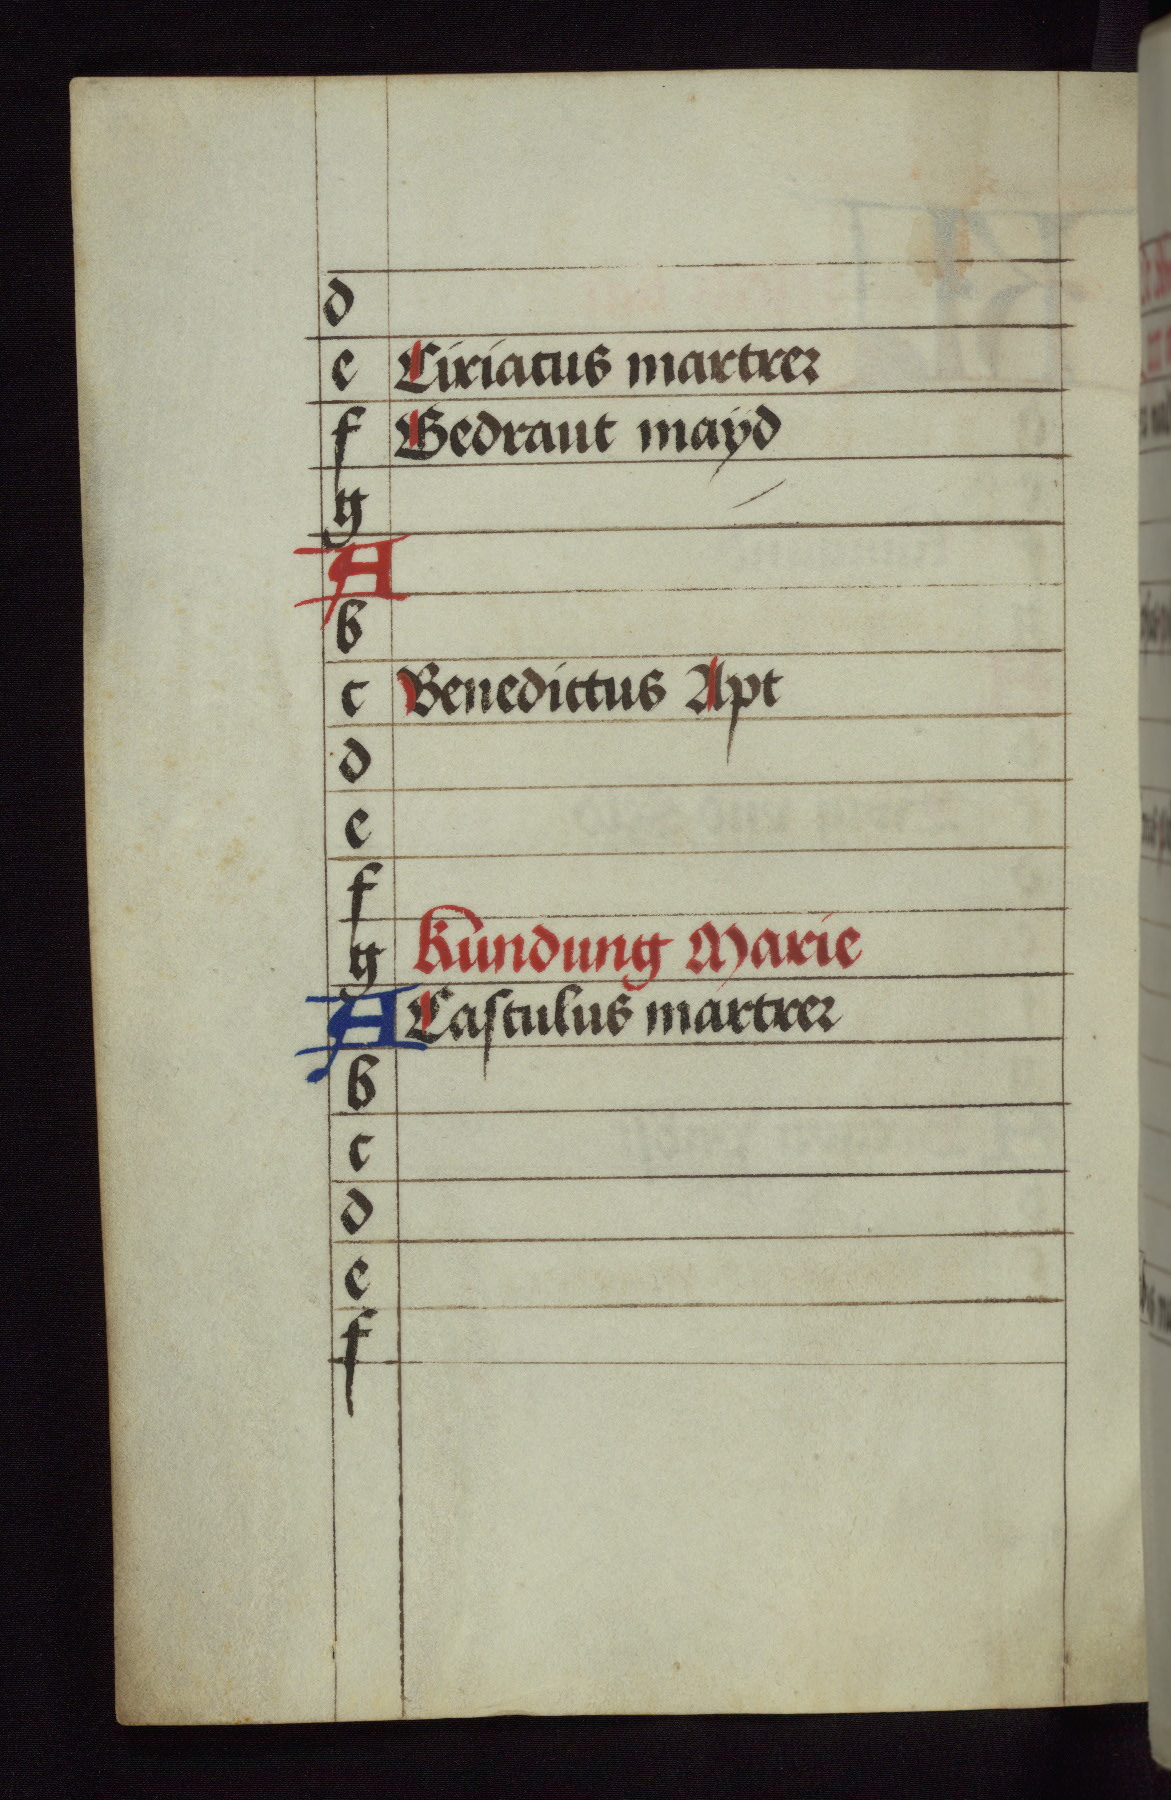 d
e Ciriacus martrer
f Gedraut mayd
g
A
b
c Benedictus Apt
d
e
f
g kündung Marie
A Castulus martrer
b
c
d
e
f